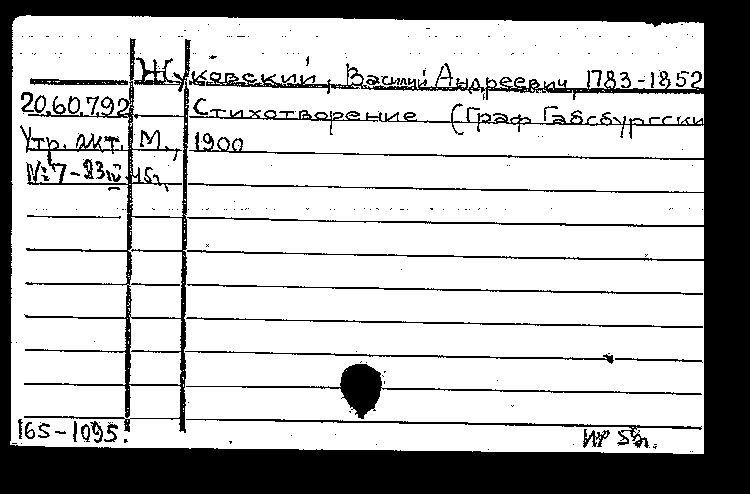 Жуковский, Василий Андреевич, 1783-1852
20.60.792 Стихотворение (Граф Габсбургски
Утр. акт. М., 1900
№7-23
165-1095.